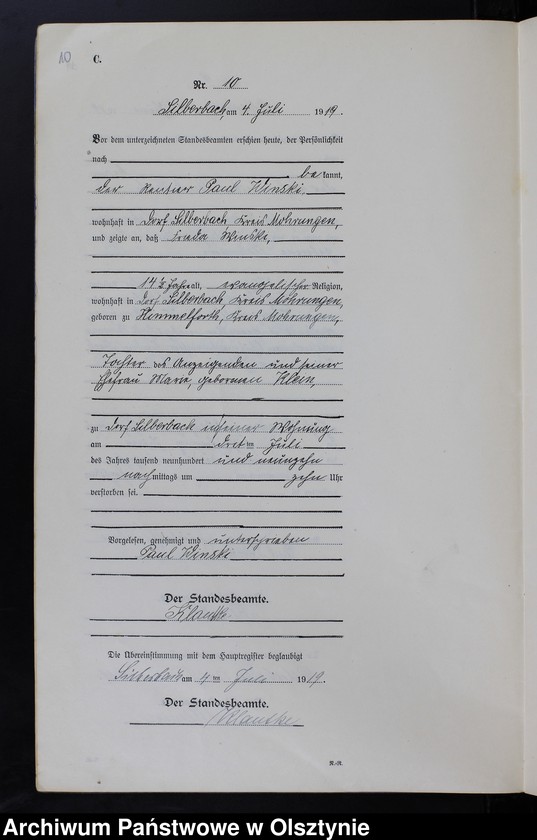 10
C.
Nr. 10
Silberbach, am 4. Juli 1919.
Vor dem unterzeichneten Standesbeamten erschien heute, der Persönlichkeit
nach
bekannt,
der Rentier Paul Winski
wohnhaft in Dorf Silberbach, Kreis Mohrungen,
und zeigte an, daß Frieda Winski,
14 ½ Jahre alt, evangelischer Religion,
wohnhaft in Dorf Silberbach, Kreis Mohrungen,
geboren zu Himmelforth, Kreis Mohrungen,
Tochter des Anzeigenden und seiner
Ehefrau Marie, geborenen Klein,
zu Dorf Silberbach in seiner Wohnung
am drei ten Juli
des Jahres tausend neunhundert und neunzehn
nachmittags um zehn Uhr
verstorben sei.
Vorgelesen, genehmigt und unterschrieben
Paul Winski
Der Standesbeamte.
Klautke.
Die Übereinstimmung mit dem Hauptregister beglaubigt
Silberbach am 4 ten Juli 1919.
Der Standesbeamte.
Klautke
R.-R.
Archiwum Państwowe w Olsztynie